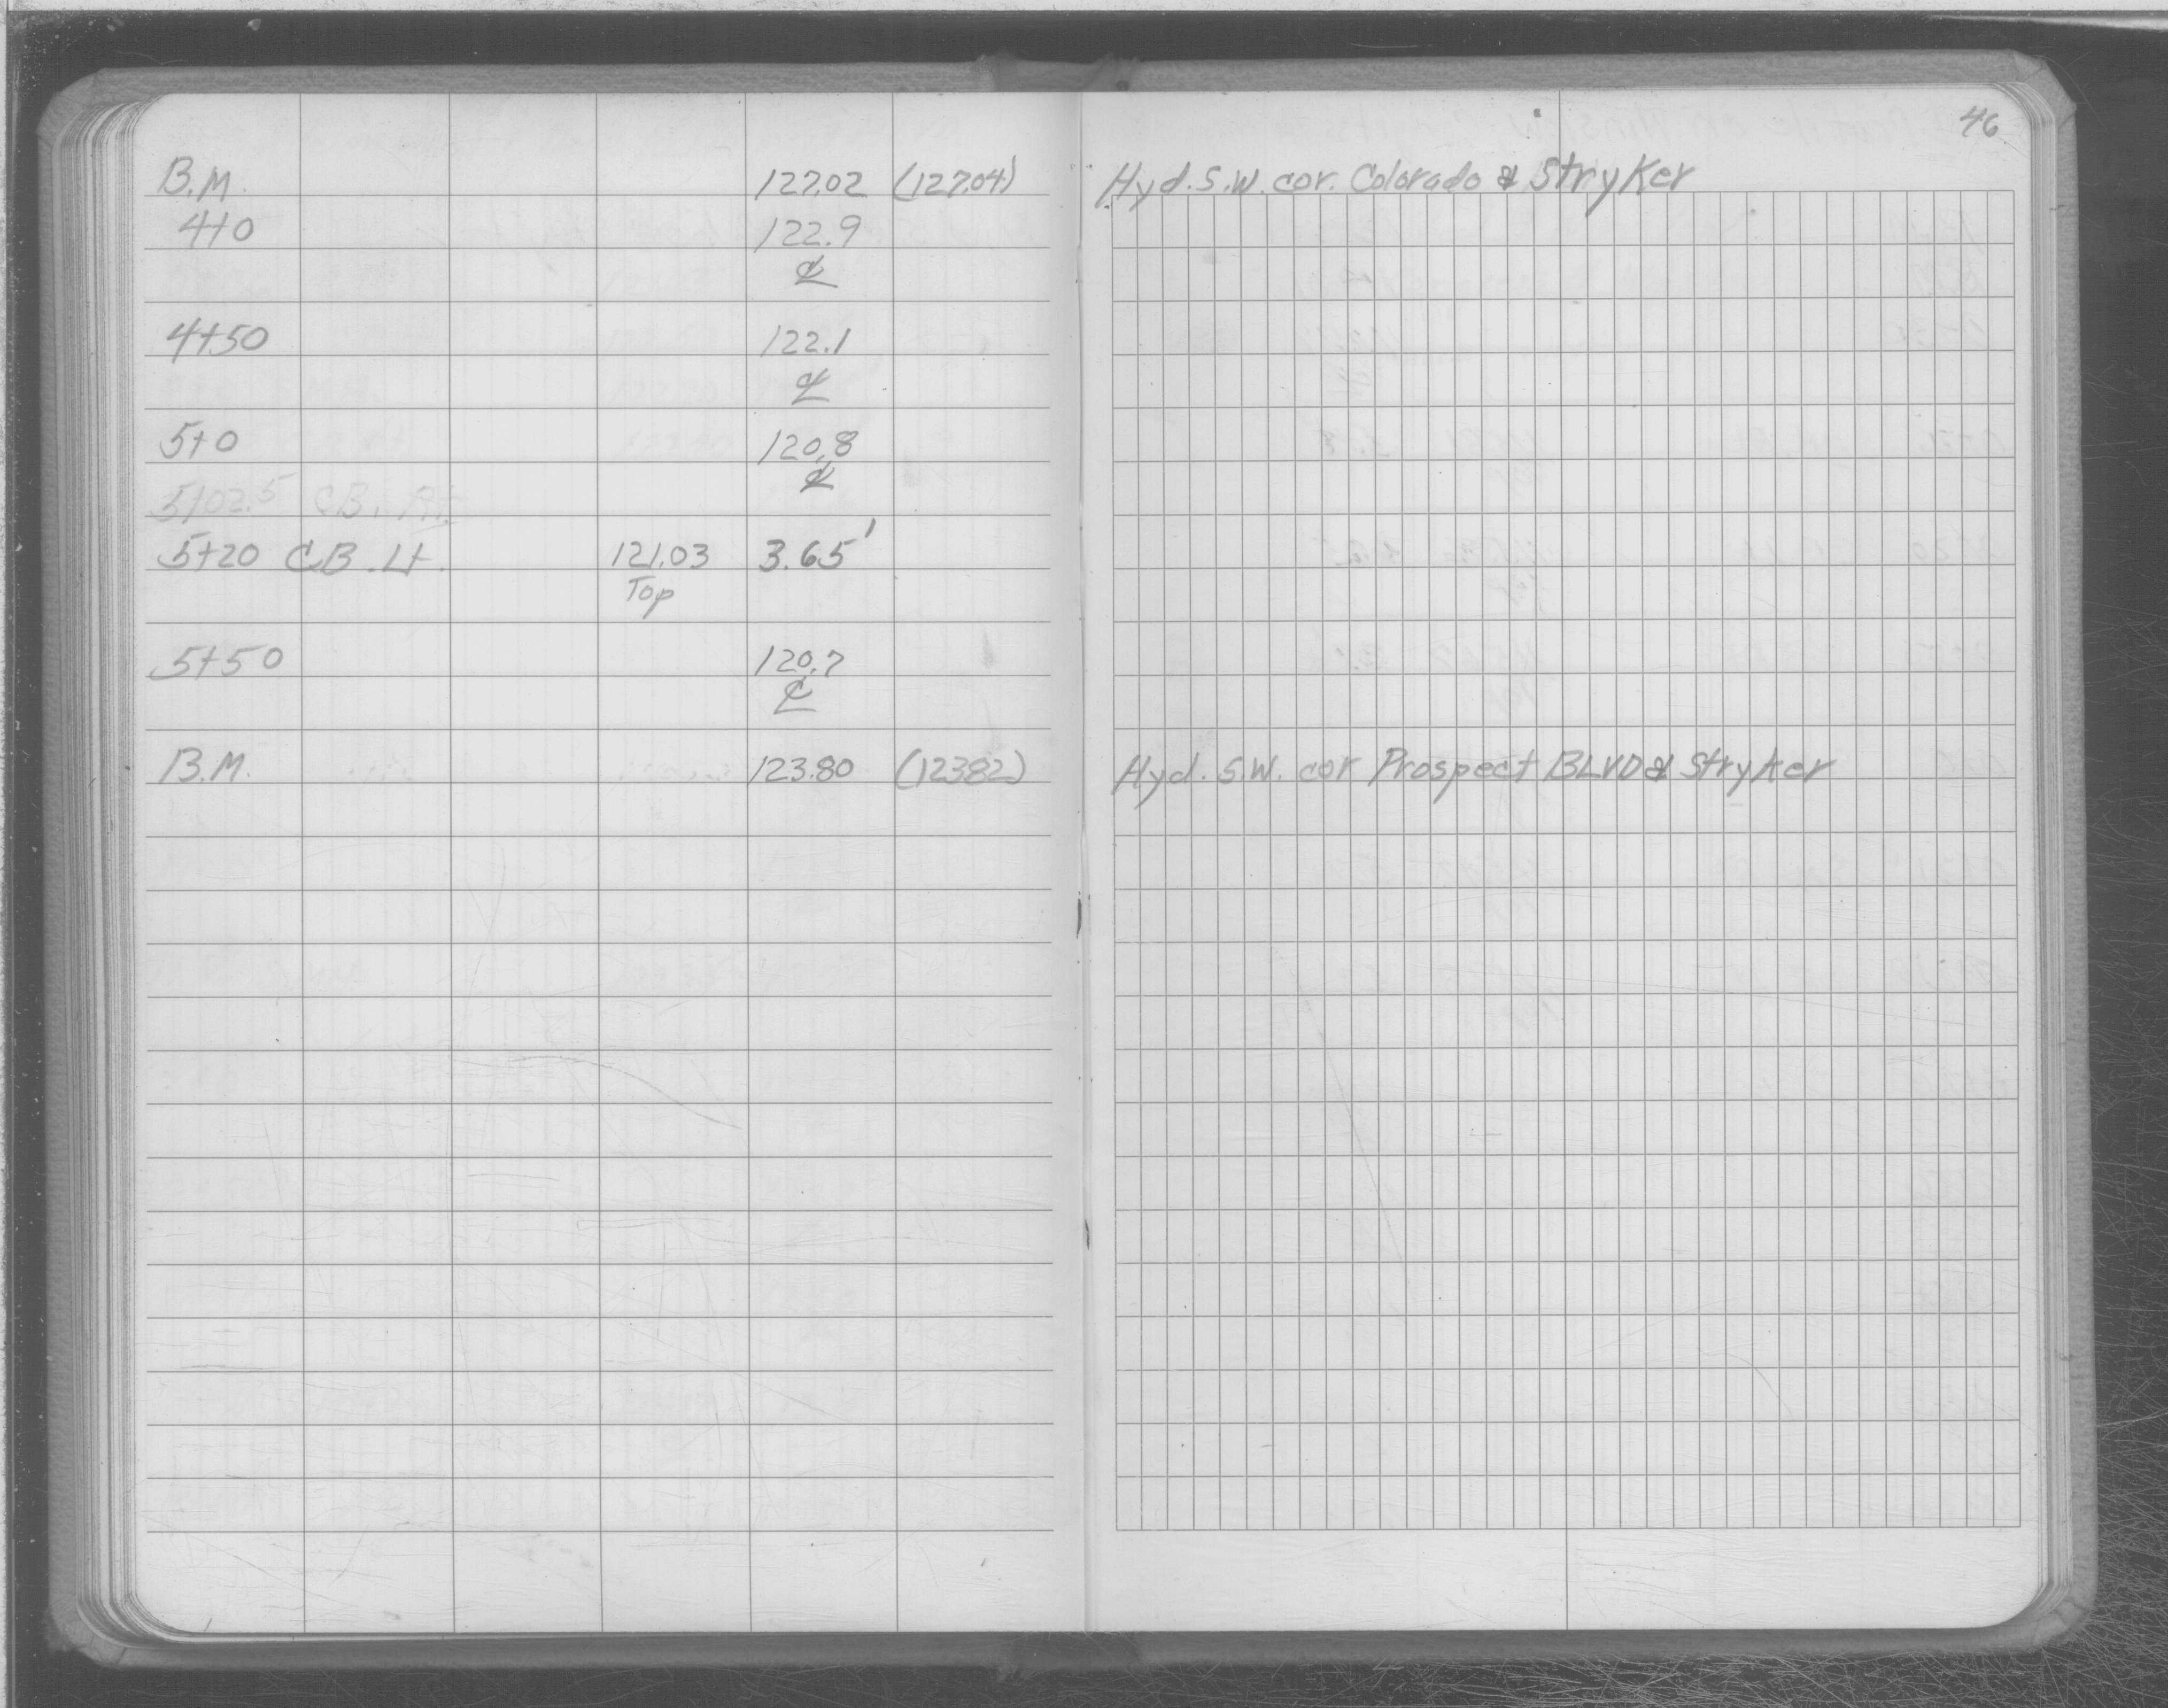 46
B.M. 127.02 (127.04) Hyd. S.W. cor. Colorado & Stryker
4+0 122.9
℄
4+50 122.1
℄
5+0 120.8
℄
5+02.5 CB. Rt.
5+20 CB. Lt. 121.03 3.65'
Top
5+50 120.7
℄
B.M. 123.80 (123.82) Hyd. S.W. cor Prospect BLVD & Stryker